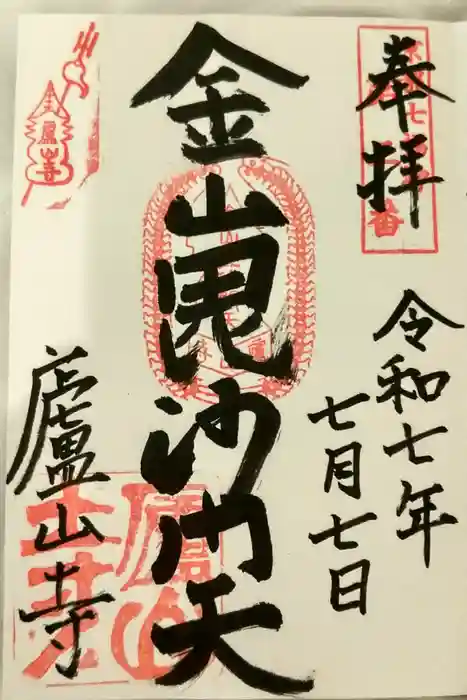 奉拝
令和七年
七月七日
金山毘沙門天
廬山寺